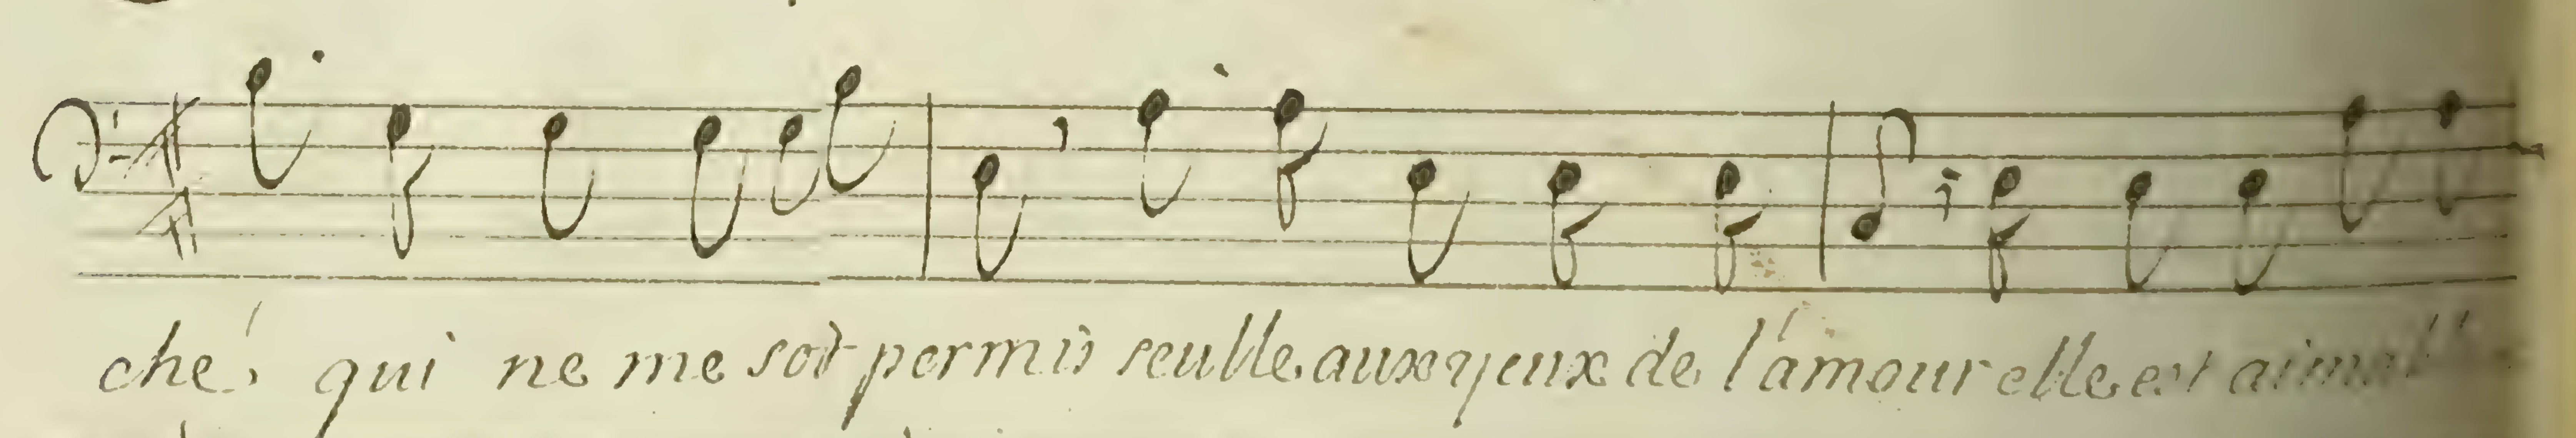 ché qui ne me soit permis seulle aux yeux de l'amour elle est aimable